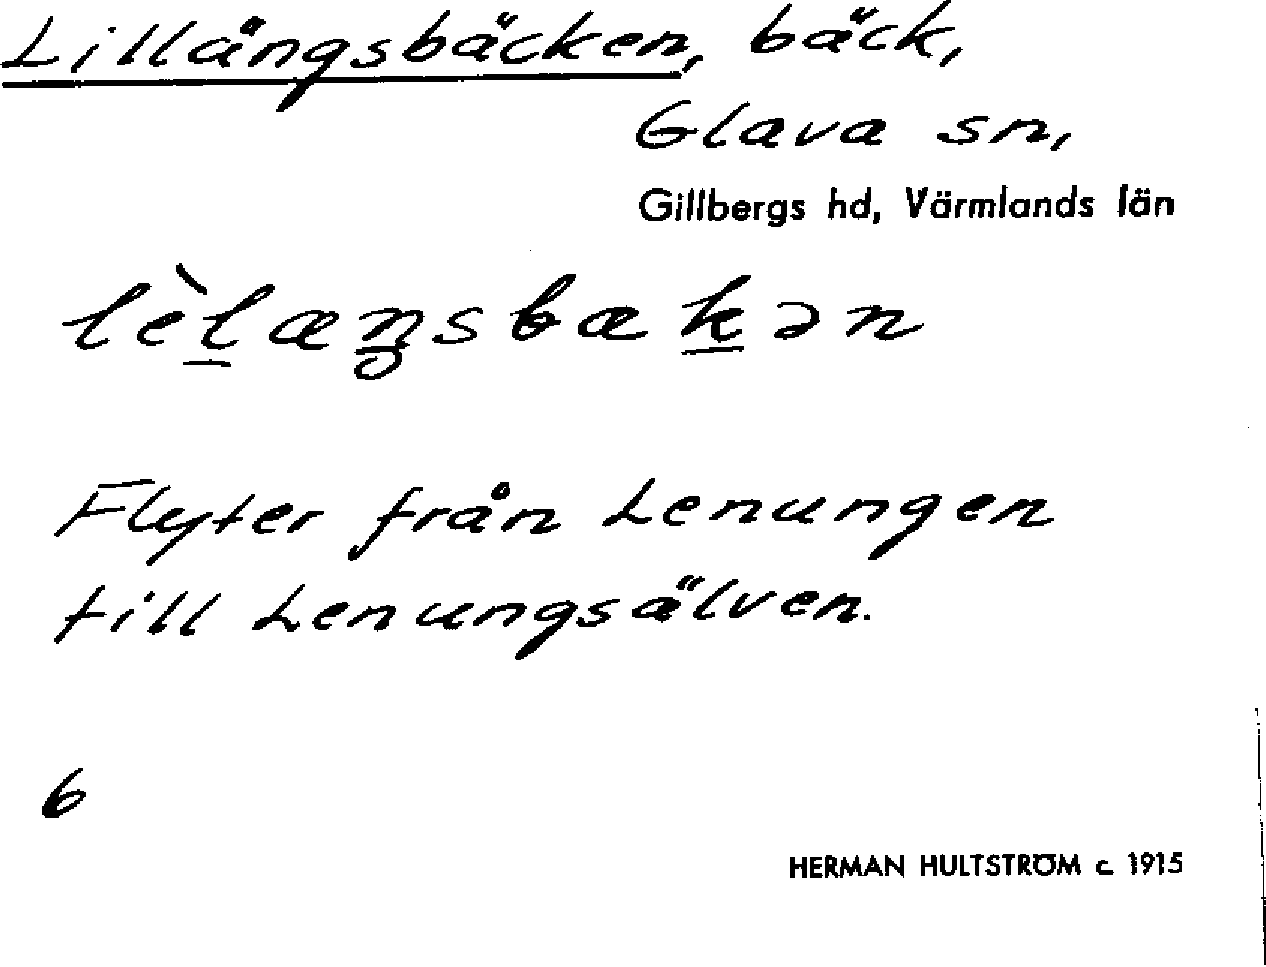 Lillängsbäcken, bäck,
Glava sn,
Gillbergs hd, Värmlands län
lèl̠æŋ̠sbæk̠ən
Flyter från Lenungen
till Lenungsälven.
6
HERMAN HULTSTRÖM c. 1915